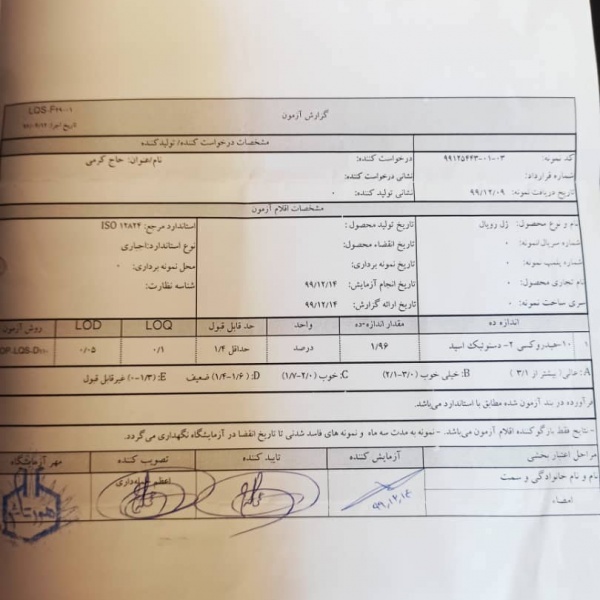 LQS-F۲۹۰۰۱
گزارش آزمون
مشخصات درخواست کننده/ تولیدکننده
کد نمونه: ۹۹۱۲۵۴۴۳-۰۱-۰۳
درخواست کننده:
نام/عنوان: حاج کرمی
شماره قرارداد:
نشانی درخواست کننده:
تاریخ دریافت نمونه: ۹۹/۱۲/۰۹
نشانی تولید کننده: ۰
مشخصات اقلام آزمون
نام و نوع محصول: ژل رویال
تاریخ تولید محصول:
استاندارد مرجع: ISO ۱۲۸۲۴
شماره سریال نمونه: ۰
تاریخ انقضاء محصول:
نوع استاندارد: اجباری
شماره پلمپ نمونه: ۰
تاریخ نمونه برداری:
محل نمونه برداری: ۰
نام تجاری محصول: ۰
تاریخ انجام آزمایش: ۹۹/۱۲/۱۴
شناسه نظارت:
سری ساخت نمونه: ۰
تاریخ ارائه گزارش: ۹۹/۱۲/۱۴
اندازه ده مقدار اندازه-ده واحد حد قابل قبول LOQ LOD روش آزمون
۱ ۱۰-هیدروکسی ۲- دسنوئیک اسید ۱/۹۶ درصد حداقل ۱/۴ ۰/۱ ۰/۰۵
A: عالی( بیشتر از ۳/۱ ) B: خیلی خوب (۳/۰-۲/۱) C: خوب (۲/۰-۱/۷) D: (۱/۶-۱/۴) ضعیف E: (۱/۳-۰) غیرقابل قبول
فرآورده در بند آزمون شده مطابق با استاندارد میباشد.
-نتایج فقط بازگو کننده اقلام آزمون می باشد. -نمونه به مدت سه ماه و نمونه های فاسد شدنی تا تاریخ انقضا در آزمایشگاه نگهداری می گردد.
مراحل اعتبار بخشی آزمایش کننده تایید کننده تصویب کننده مهر آزمایشگاه
نام و نام خانوادگی و سمت
اعظم
امضاء
۹۹,۱۲,۱۴